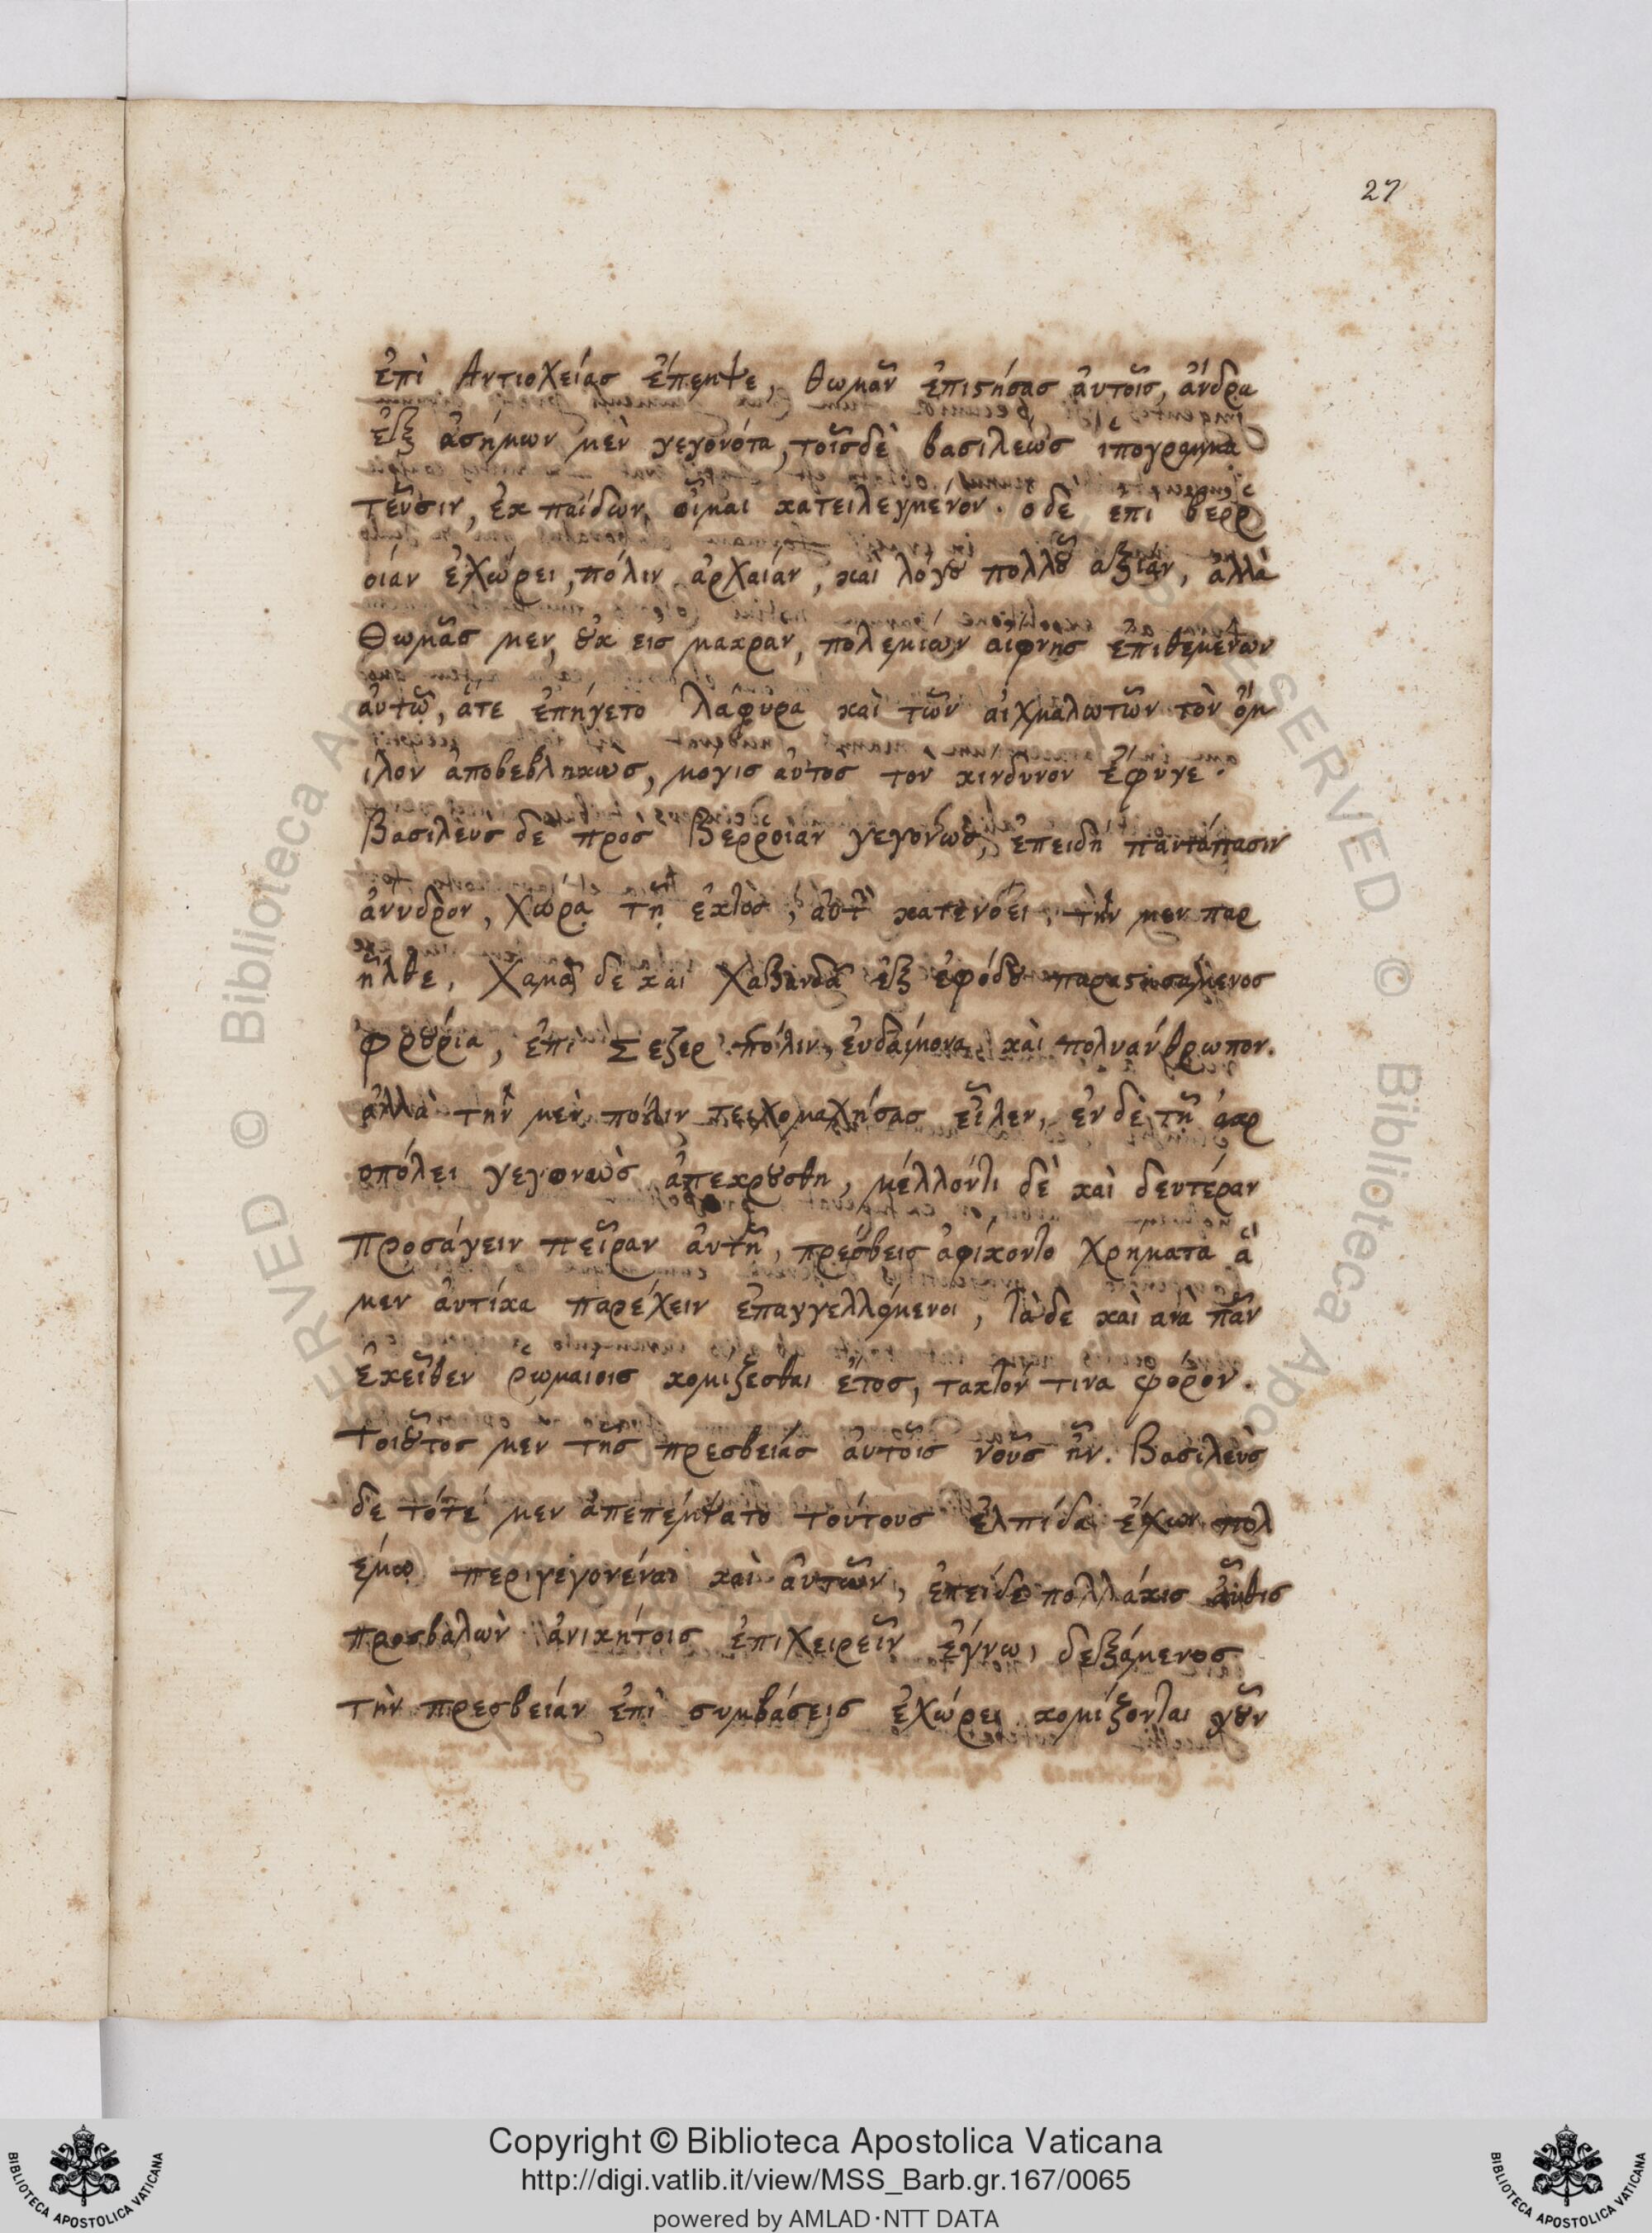 27
ἐπὶ Αντιοχείας ἔπεμψε, θωμᾶν ἐπιστήσας ἀυτοῖς, ἄνδρα
ἐξ ἀσήμων μὲν γεγονότα, τοῖσδὲ βασιλεὼς ὑπογραμμα
τεῦσιν, ἐκ παίδων, οἶμαι κατειλεγμένον. οδε ἐπι βερρ
οιάν ἐχώρει, πόλιν ἀρχαιάν, καὶ λόγȣ πολλȣ̃ αξιάν, ἀλλὰ
Θωμᾶς μεν, ȣ̓κ εις μακραν, πολεμιων αίφνης ἐπιθεμένων
ἀυτῶ, ἅτε ἐπήγετο λάφυρα καὶ τῶν αἰχμαλωτῶν τὸν ὅμ
ιλον ἀποβεβληκως, μόγις αὐτος τον κινδυνον ἔφυγε.
Βασιλευς δε προς Βερροιαν γεγονως, ἐπειδη παντάπασιν
ἀνυδρον, χώρα τῆ εκτος, ἀυτ κατενόει, τὴν μεν παρ
ῆλθε, χαμα δε και χαβανδα ἐξ ἐφόδȣ παραστησαμενος
φρȣρία, ἐπι Σεζερ πόλιν, ἐυδαίμονα, καὶ πολυάνθρωπον.
ἀλλὰ τὴν μὲν πόλιν τειχομαχήσας εἷλεν, ἐν δὲ τῆ ἀκρ
οπόλει γεγονὼς ἀπεκρȣ́σθη, μέλλοντι δὲ καὶ δευτέραν
προσάγειν πεῖραν ἀυτῆ, πρέσβεις ἀφίκοντο χρήματα ἃ
μεν ἀυτίκα παρέχειν ἐπαγγελλόμενοι, τὰ δε καὶ ανὰ πᾶν
ἐκεῖθεν ῥωμαιοις κομιζεσθαι ἔτος, τακτον τινα φόρον.
Τοιȣ̃τος μεν τῆς πρεσβείας ἀυτοῖς νοῦς ἦν. Βασιλεὺς
δε τότε μεν ἀπεπέμψατο τόυτους ἐλπίδα ἔχων πολ
έμω περιγεγονέναι καὶ ἀυτῶν, ἐπείδε πολλάκις ἆυθις
προσβαλὼν ἀνικήτοις ἐπιχειρεῖν ἔγνω, δεξάμενος
τὴν πρεσβείαν ἐπὶ συμβάσεις ἐχώρει κομίζονται γȣ̃ν
Copyright © Biblioteca Apostolica Vaticana
http://digi.vatlib.it/view/MSS_Barb.gr.167/0065
powered by AMLAD·NTT DATA